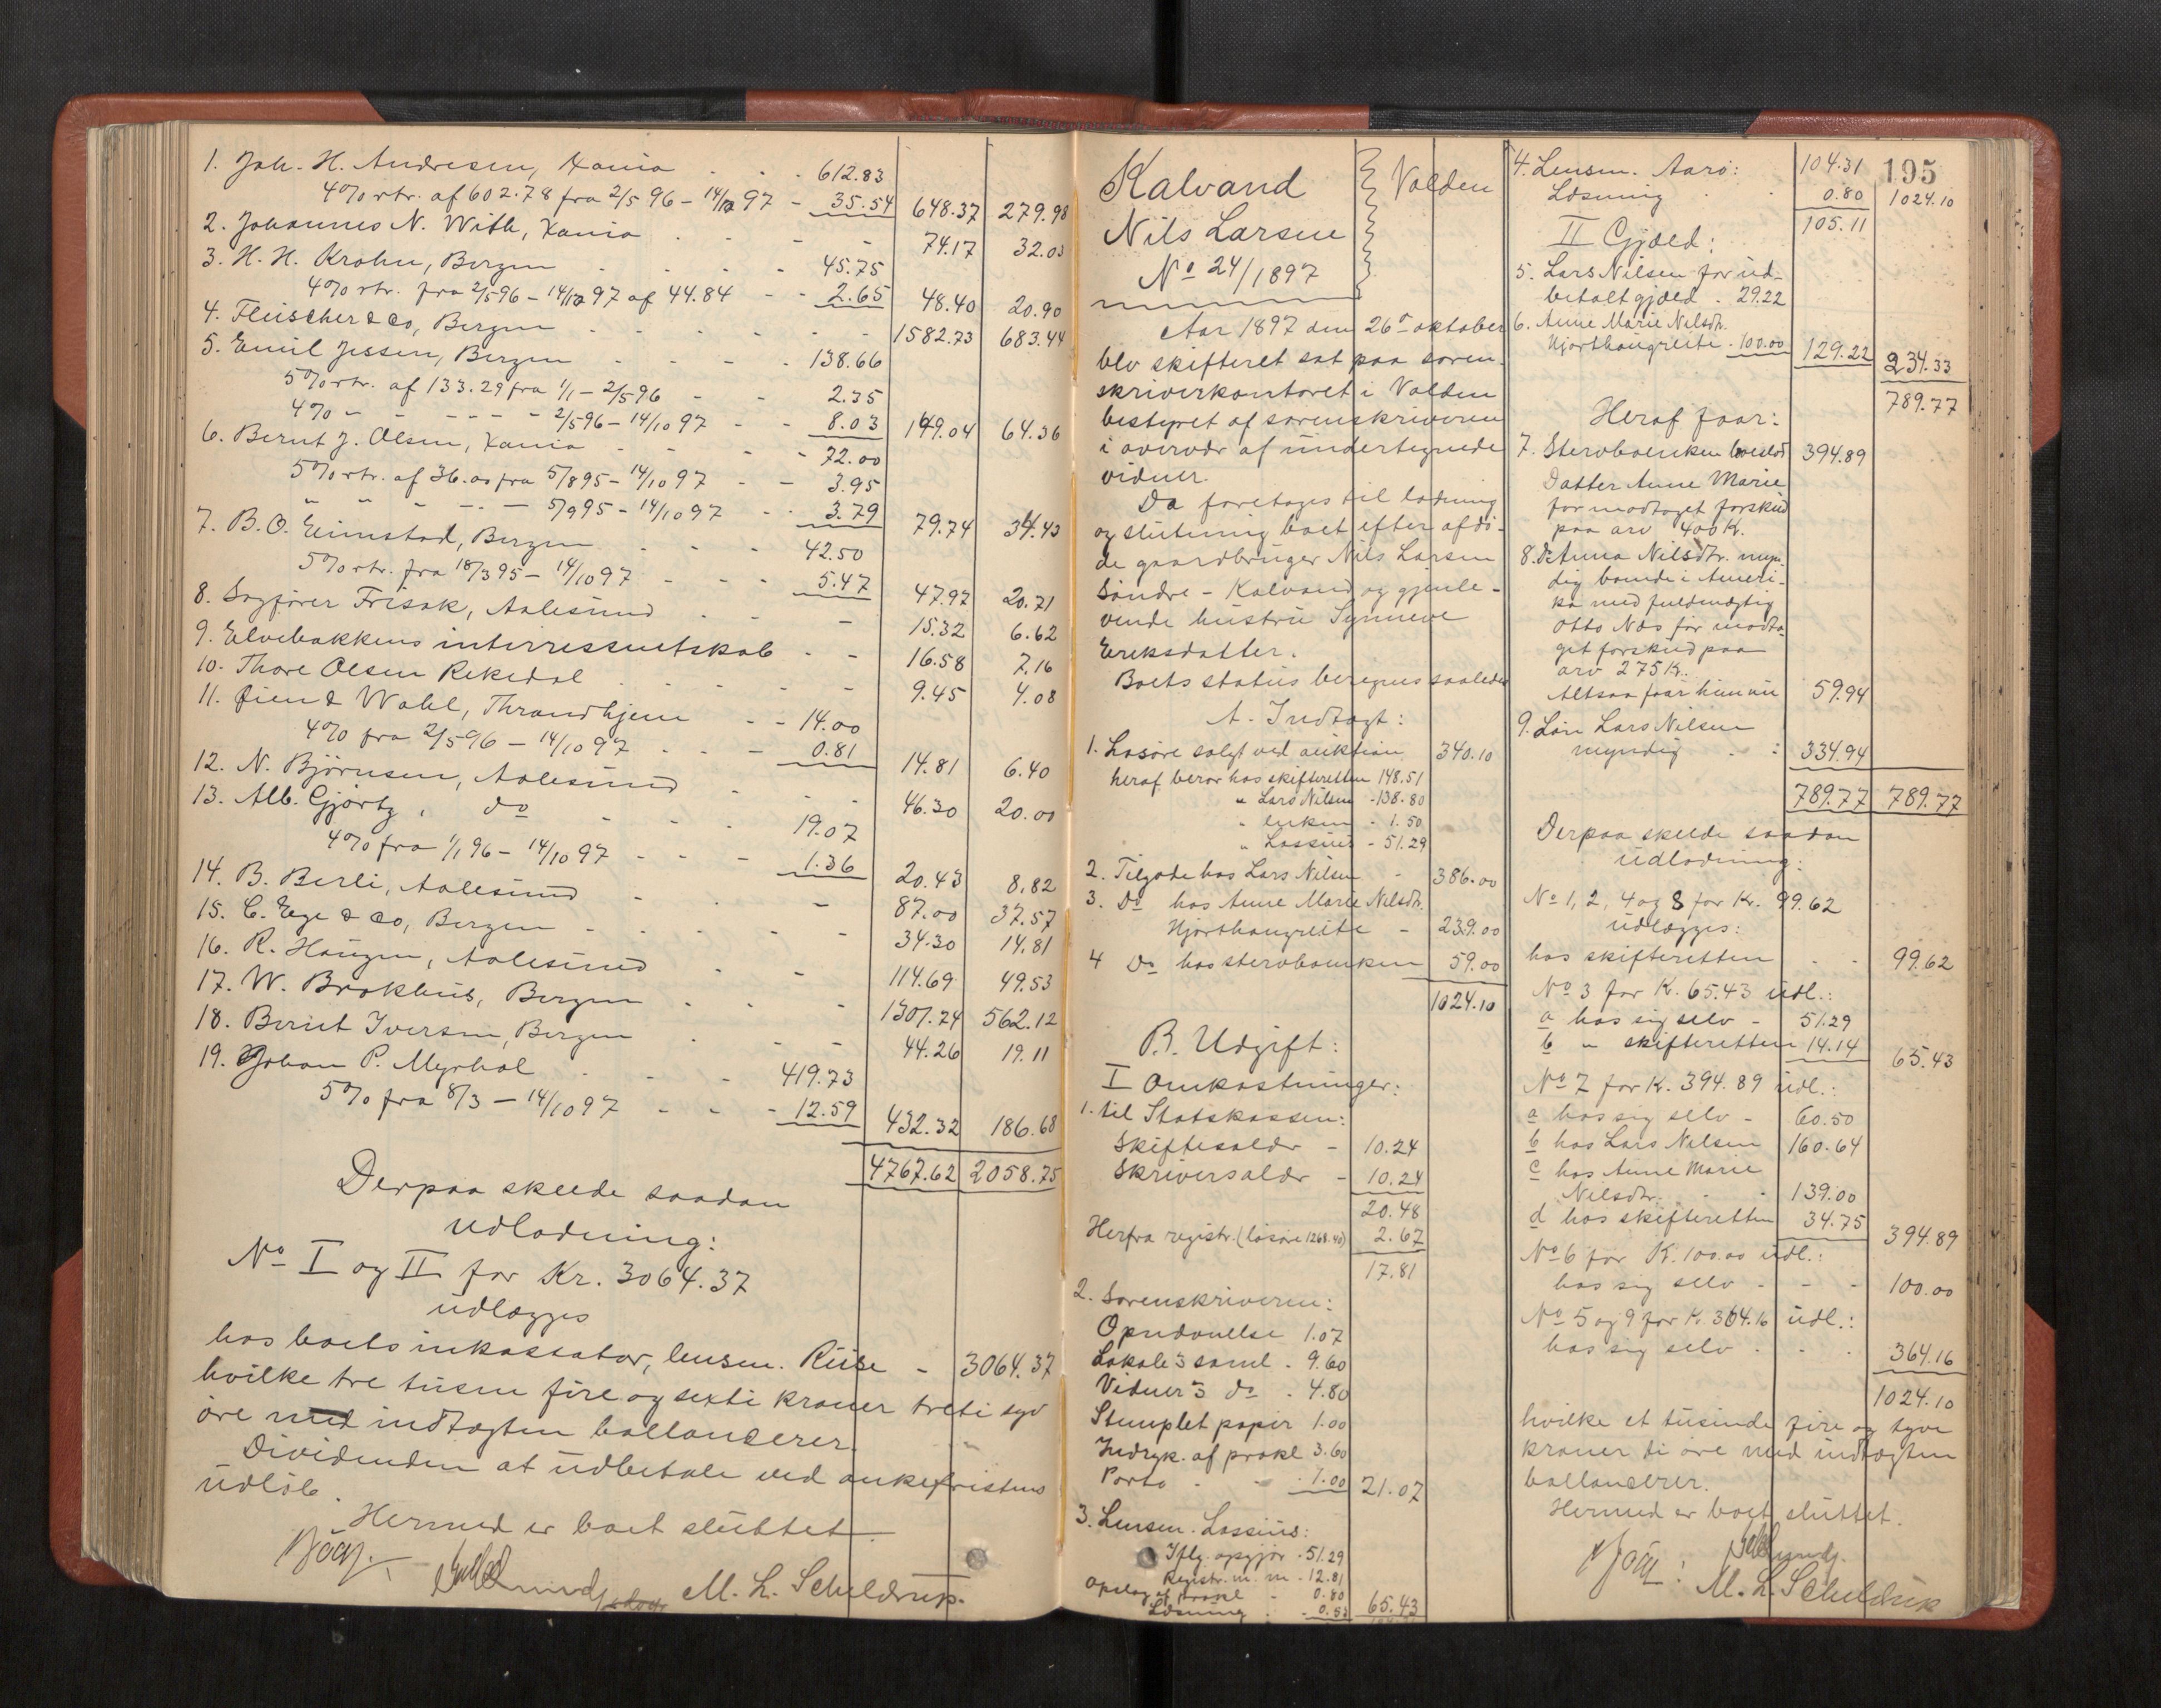 1. Joh. H. Andresen, Xania - - - 612.83
4% rtr. af 602.78 fra 2/5 96 - 14/10 97 - 35.54 648.37 279.98
2. Johannes N. With, Xania - - - - 74.17 32.03
3. H. H. Krohn, Bergen - - - - 45.75
4% rtr. fra 2/5 96 - 14/10 97 af 44.84 - - 2.65 48.40 20.90
4. Fleischer & Co, Bergen - - - - 1582.73 683.44
5. Emil Jessen, Bergen - - - - 138.66
5% rtr. af 133.29 fra 1/1 - 2/5 96 - - 2.35
4% " - - - - 2/5 96 - 14/10 97 - - 8.03 149.04 64.36
6. Bernt J. Olsen, Xania - - - - 72.00
5% rtr. af 36.00 fra 5/8 95 - 14/10 97 - - 3.95
" " " - - - 5/9 95 - 14/10 97 - - 3.79 79.74 34.43
7. B. O. Eimstad, Bergen - - - 42.50
5% rtr. fra 18/3 95 - 14/10 97 - - - 5.47 47.97 20.71
8. Sagfører Frisak, Aalesund - - - 15.32 6.62
9. Elvebakkens interressentskab - - 16.58 7.16
10. Thore Olsen Rekedal - - - - 9.45 4.08
11. Øien & Wahl, Thrandhjem - - 14.00
4% fra 2/5 96 - 14/10 97 - - - 0.81 14.81 6.40
12. N. Bjørnsen, Aalesund - - - 46.30 20.00
13. Alb. Gjørtz, do - - - 19.07
4% fra 1/1 96 - 14/10 97 - - - 1.36 20.43 8.82
14. B. Berli, Aalesund - - - 87.00 37.57
15. C. Ege & Co, Bergen - - - - 34.30 14.81
16. R. Haugen, Aalesund - - - 114.69 49.53
17. W. Brokhus, Bergen - - - 1301.74 562.12
18. Berut Iversen, Bergen - - - 44.26 19.11
19. Johan P. Myrhol - - - 419.73
5% fra 8/3 - 14/10 97 - - - 12.59 432.32 186.68
4767.62 2058.75
Derpaa skeede saadan
udlodning:
No I og II for Kr. 3064.37
udlægges
hos boets inkassator, lensm. Riise - 3064.37
hvilke tre tusen fire og sexti kroner treti syv
øre med indtægten ballancerer.
Dividenden at udbetale ved ankefristens
udløb.
Hermed er boet sluttet
M. L. Scheldrup.
Kalvand
Nils Larsen
No 24/1897
Volden
Aar 1897 den 26de oktober
blev skifteret sat paa soren-
skriverkontoret i Volden
bestyret af sorenskriveren
i overvær af undertegnede
vidner.
Da foretages til lodning
og slutning boet efter afdø-
de gaardbruger Nils Larsen
Søndre-Kalvand og gjenle-
vende hustru Synneve
Ereksdatter.
Boets status beregnes saaledes
A. Indtægt:
1. Løsøre solgt ved auktion 340.10
heraf beror hos skifteretten 148.51
" Lars Nilsen - 138.80
" enken - 1.50
" Lossius - 51.29
2. Tilgode hos Lars Nilsen - 386.00
3. Do hos Anne Marie Nilsdtr.
Hjorthaugreite - 239.00
4 Do hos stervboenken 59.00
1024.10
B. Udgift:
I Omkostninger:
1. til Statskassen:
Skiftesaldr - 10.24
Skriversaldr - 10.24
20.48
Herfra registr. (løsøre 1268.40) 2.67
17.81
2. Sorenskriveren:
Opndøuelse 1.07
Lokale 3 saml. 9.60
Vidner 3 do - 4.80
Stemplet papir 1.00
Indryk. af prokl 3.60
Porto - - 1.00 21.07
3. Lensm. Lossius:
Iflg. opgjør - 51.29
Registr. m. m - 12.81
opslag af prokl - 0.80
Løsning - 0.53 65.43
195
4. Lensm. Aarø: 104.31
Løsning 0.80 1024.10
105.11
II Gjæld:
5. Lars Nilsen for ud-
betalt gjæld . 29.22
6. Anne Marie Nilsdtr.
Hjorthaugreite - 100.00 129.22 234.33
789.77
Heraf faar:
7. Stervboenken boeslod 394.89
Datter Anne Marie
for modtaget forskud
paa arv 400 Kr.
8. Do Anna Nilsdtr. myn-
dig boende i Ameri-
ka med fuldmægtig
Otto Næs før modta-
get forskud paa
arv 275 Kr.
Altsaa faar hun nu 59.94
9. Søn Lars Nilsen
myndig - : 334.94
789.77 789.77
Derpaa skeede saadan
udlodning:
No 1, 2, 4 og 8 for Kr. 99.62
udlægges:
hos skifteretten - - 99.62
No 3 for K. 65.43 udl.:
a hos sig selv - 51.29
b " skifteretten 14.14 65.43
No 7 for K. 394.89 udl.:
a hos sig selv - 60.50
b hos Lars Nilsen 160.64
c hos Anne Marie
Nilsdtr. - - 139.00
d hos skifteretten 34.75 394.89
No 6 for K. 100.00 udl.:
hos sig selv - - - 100.00
No 5 og 9 for K. 364.16 udl.:
hos sig selv - - - 364.16
1024.10
hvilke et tusinde fire og tyve
kroner ti øre med indtægten
ballancerer.
Hermed er boet sluttet.
M. L. Scheldrup